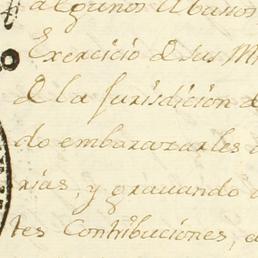 algunos Abusos
Exercicio de sus Mi
de la Jurisdicion d
do embarazarles
rias, y gravando
tes Contribuciones, a